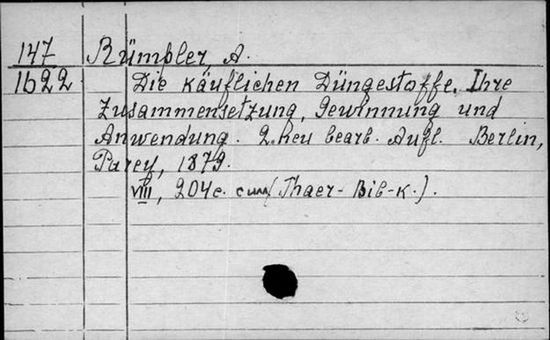 147 Rümbler, A.
1622 Die käuflichen Düngestoffe, Ihre
Zusammensetzung, Gewinnung und
Anwendung. 2. neu bearb. Aufl. Berlin,
Parey, 1879.
VIII, 204c. (Thaer-Bib-k.).